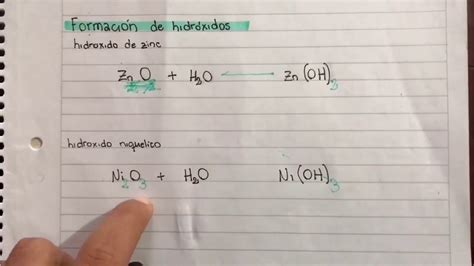 Formación de hidróxidos
hidroxido de zinc
Zn O + H₂O ⟵ Zn (OH)₂
hidroxido niquelico
Ni₂O₃ + H₂O Ni (OH)₃